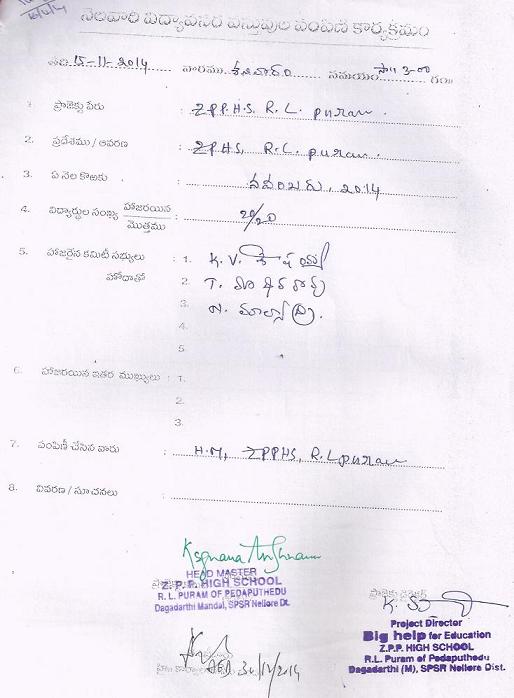 నెలవారి విద్యావసర వస్తువుల పంపిణి కార్యక్రమం
తేది 15-11-2014 వారము శనివారం సమయం సా॥ 3-00 గం॥
1. ప్రాజెక్టు పేరు : Z.P.P.H.S. R.L. puram.
2. ప్రదేశము / ఆవరణ : ZPHS, R.L. puram.
3. ఏ నెల కొఱకు : నవంబరు, 2014
4. విద్యార్థుల సంఖ్య హాజరయిన / మొత్తము : 20/20
5. హాజరైన కమిటీ సభ్యులు : 1. K.V. శేషయ్య
హోదాతో 2. T.
3. N.
4.
5.
6. హాజరయిన ఇతర ముఖ్యులు : 1.
2.
3.
7. పంపిణీ చేసిన వారు : H.M, ZPPHS, R.L puram
8. వివరణ / సూచనలు :
HEAD MASTER
Z.P.P. HIGH SCHOOL
R.L. PURAM OF PEDAPUTHEDU
Dagadarthi Mandal, SPSR Nellore Dt.
ప్రాజెక్టు డైరెక్టర్
Project Director
Big help for Education
Z.P.P. HIGH SCHOOL
R.L. Puram of Pedaputhedu
Dagadarthi (M), SPSR Nellore Dist.
30/12/2014